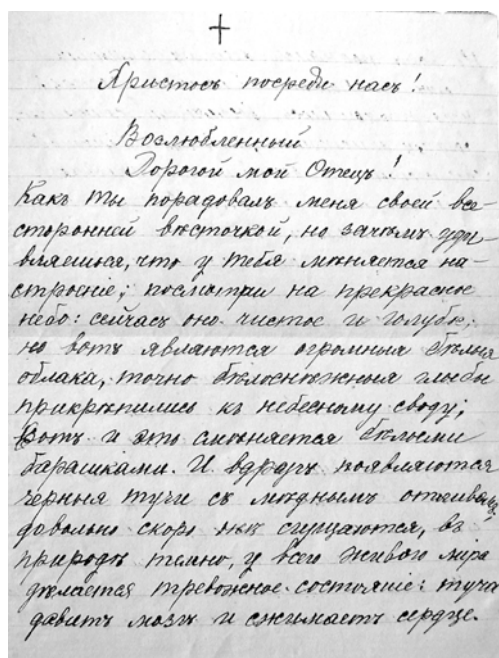 Христосъ посреди насъ!
Возлюбленный
Дорогой мой Отецъ!
Какъ ты порадовалъ меня своей все-
сторонней вѣсточкой, но зачѣмъ уди-
вляешься, что у тебя мѣняется на-
строеніе; посмотри на прекрасное
небо: сейчасъ оно чистое и голубое,
но вотъ являются огромныя бѣлыя
облака, точно бѣлоснѣжныя глыбы
прикрѣпились къ небесному своду;
Вотъ и это смѣняется бѣлыми
барашками. И вдругъ появляются
черныя тучи съ мѣднымъ отливомъ,
довольно скоро сгущаются, въ
природѣ темно, у всего живого міра
дѣлается тревожное состояніе: туча
давитъ мозгъ и сжимаетъ сердце.